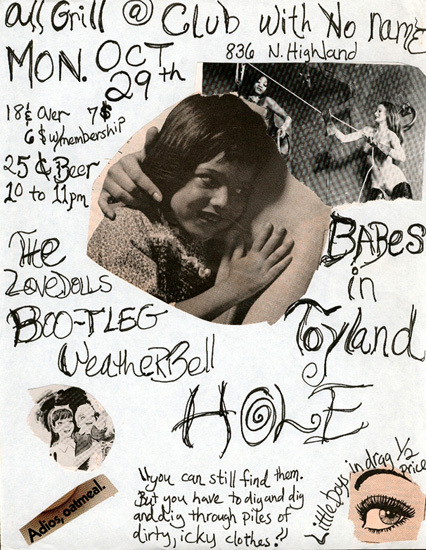 all Grill @ Club with No name
836 N. Highland
MON. OCT
29th
18 & over 7$
6 $ w/membership
25 ¢ Beer
10 to 11pm
The
LOVEDOLLS
BOO-TLEG
WeatherBell
BABes
in
Toyland
HOLE
"you can still find them.
But you have to dig and dig
and dig through piles of
dirty, icky clothes?"
Little Boys in drag 1/2
price
Adios, oatmeal.